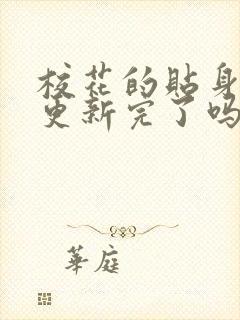 校花的貼身
更新完了吗
華庭